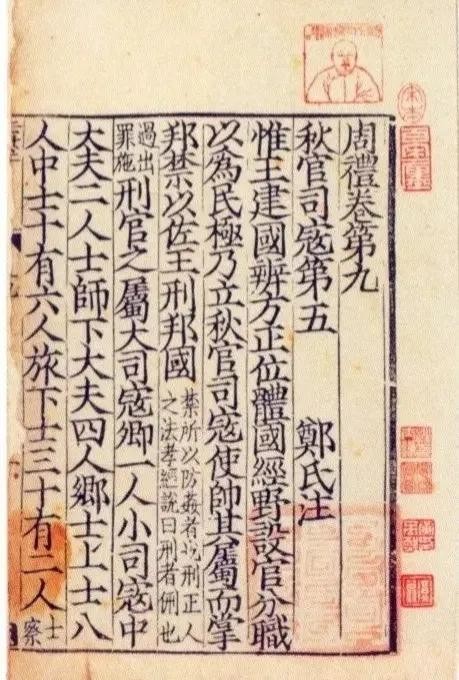 周禮卷第九
秋官司寇第五　鄭氏注
惟王建國辨方正位體國經野設官分職
以為民極乃立秋官司寇使帥其屬而掌
邦禁以佐王刑邦國禁所以防姦者也刑正人之法孝經說曰刑者侀也
過出罪施刑官之屬大司寇卿一人小司寇中
大夫二人士師下大夫四人鄉士上士八
人中士十有六人旅下士三十有二人士察